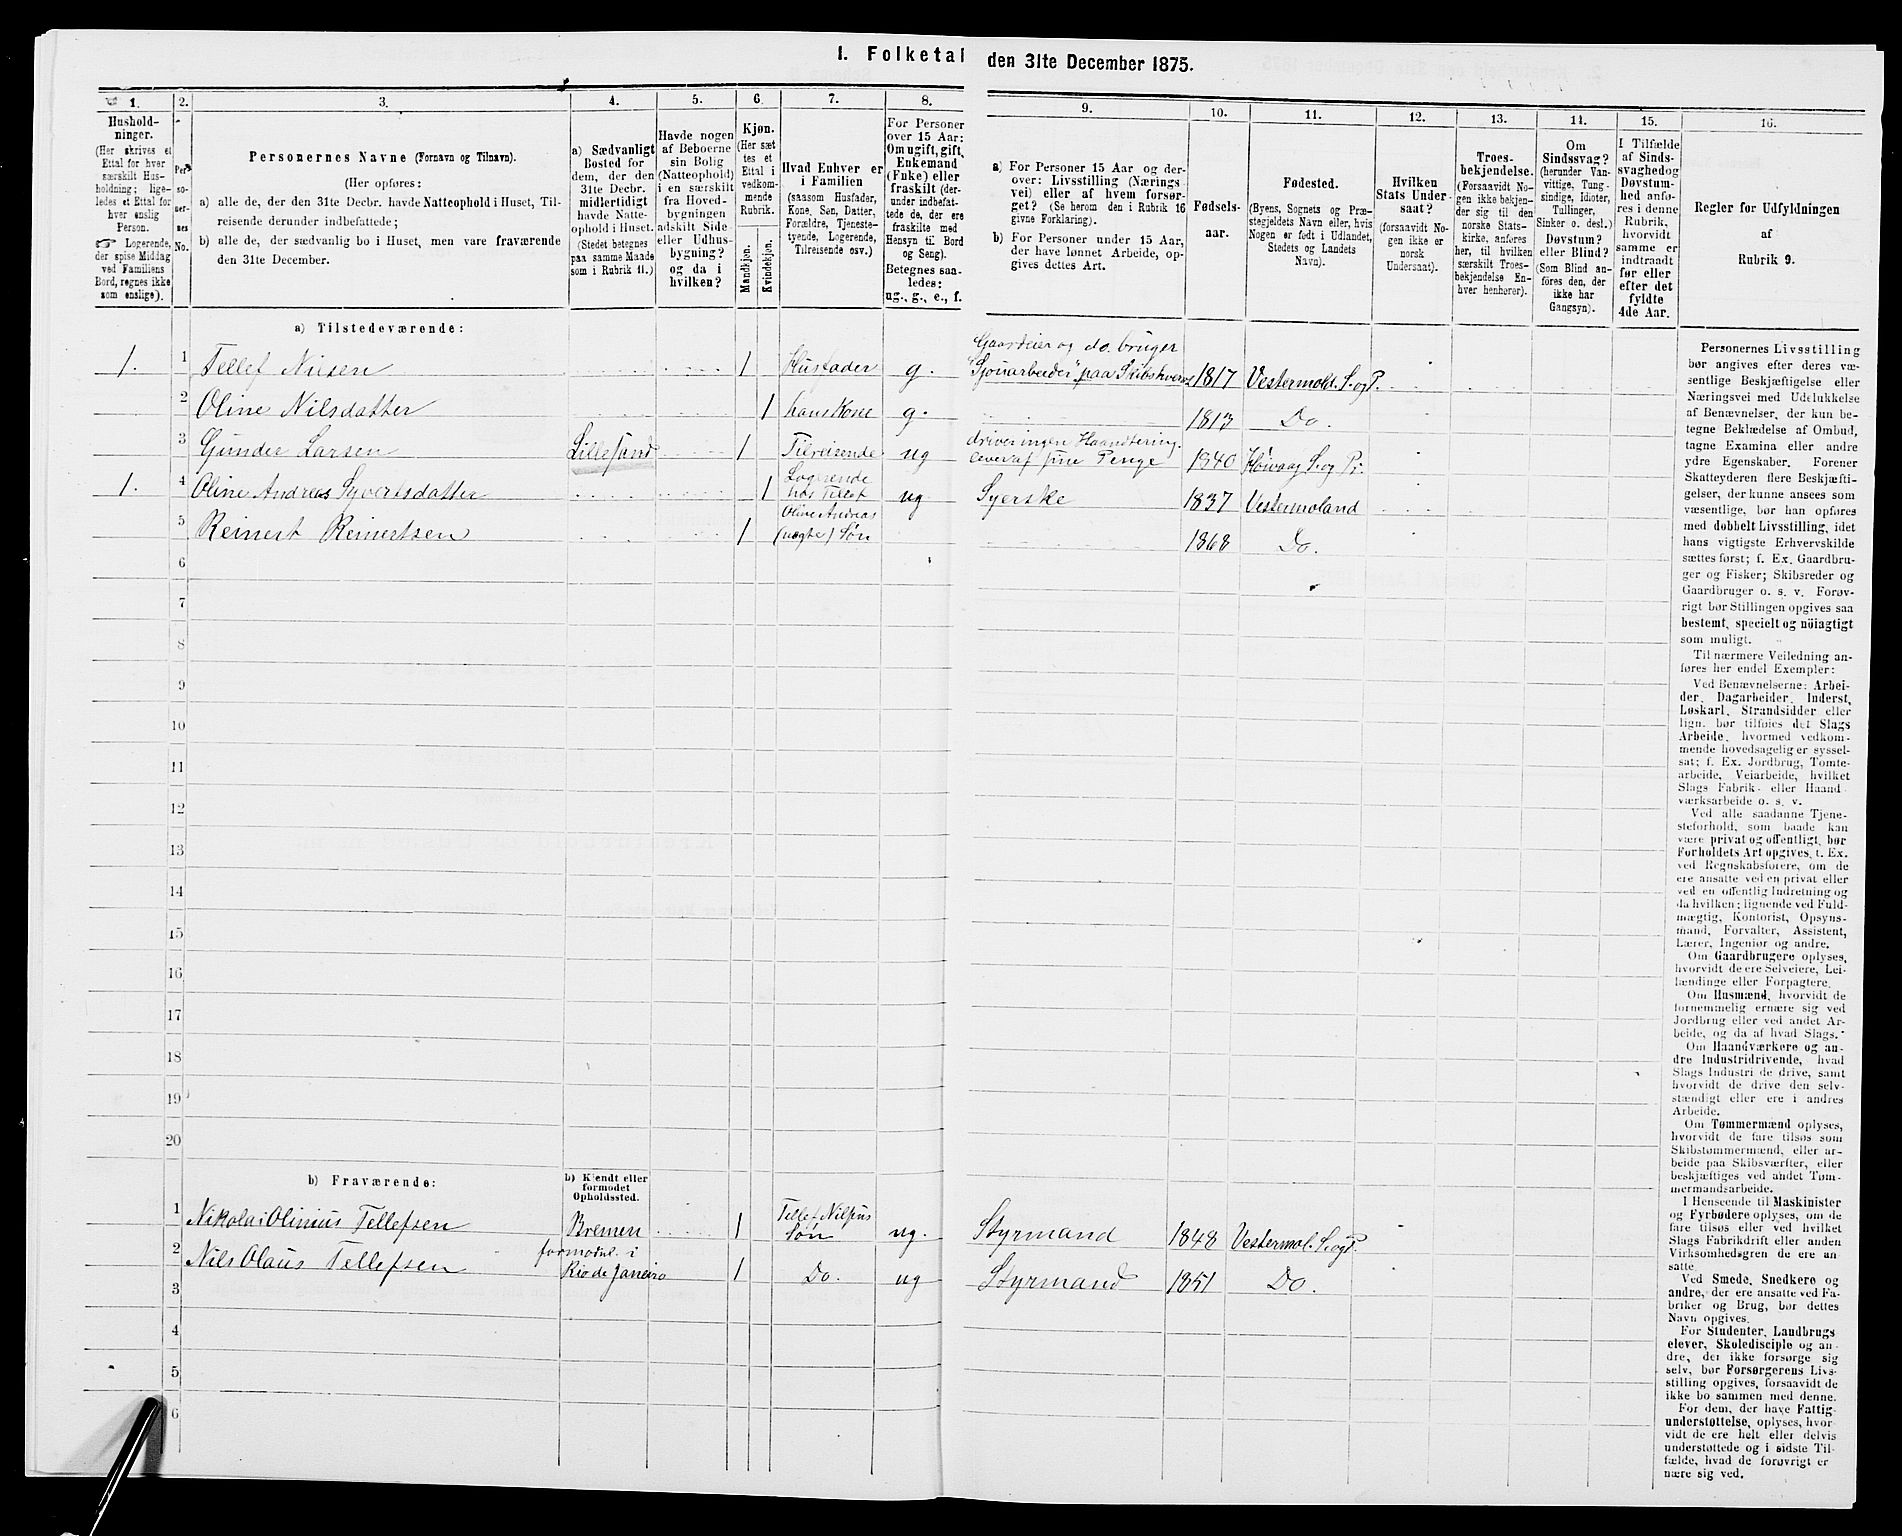 1. Folketal den 31te December 1875.
1.
Hushold-
ninger.
(Her skrives et
Ettal for hver
særskilt Hus-
holdning; lige-
ledes et Ettal for
hver enslig
Person.
☞ Logerende,
der spise Middag
ved Familiens
Bord, regnes ikke
som enslige).
2.
Per-
so-
ner-
nes
No.
3.
Personernes Navne (Fornavn og Tilnavn).
(Her opføres:
a) alle de, der den 31te Decbr. havde Natteophold i Huset, Til-
reisende derunder indbefattede;
b) alle de, der sædvanlig bo i Huset, men vare fraværende
den 31te December.
4.
a) Sædvanligt
Bosted for
dem, der den
31te Decbr.
midlertidigt
havde Natte-
ophold i Huset.
(Stedet betegnes
paa samme Maade
som i Rubrik 11.)
5.
Havde nogen
af Beboerne
sin Bolig
(Natteophold)
i en særskilt
fra Hoved-
bygningen
adskilt Side-
eller Udhus-
bygning?
og da i
hvilken?
6.
Kjøn.
(Her sæt-
tes et
Ettal i
vedkom-
mende
Rubrik.
Mandkjøn.
Kvindekjøn.
7.
Hvad Enhver er
i Familien
(saasom Husfader,
Kone, Søn, Datter,
Forældre, Tjeneste-
tyende, Logerende,
Tilreisende osv.)
8.
For Personer
over 15 Aar:
Om ugift, gift,
Enkemand
(Enke) eller
fraskilt (der-
under indbefat-
tede de, der ere
fraskilte med
Hensyn til Bord
og Seng).
Betegnes saa-
ledes:
ug., g., e., f.
9.
a) For Personer 15 Aar og der-
over: Livsstilling (Nærings-
vei) eller af hvem forsør-
get? (Se herom den i Rubrik 16
givne Forklaring).
b) For Personer under 15 Aar,
der have lønnet Arbeide, op-
gives dettes Art.
10.
Fødsels-
aar.
11.
Fødested.
(Byens, Sognets og Præ-
stegjeldets Navn eller, hvis
Nogen er født i Udlandet,
Stedets og Landets
Navn).
12.
Hvilken
Stats Under-
saat?
(forsaavidt No-
gen ikke er
norsk
Undersaat).
13.
Troes-
bekjendelse.
(Forsaavidt No-
gen ikke bekjen-
der sig til den
norske Stats-
kirke, anføres
her, til hvilken
særskilt Troes-
bekjendelse En-
hver henhører).
14.
Om
Sindssvag?
(herunder Van-
vittige, Tung-
sindige, Idioter,
Tullinger,
Sinker o. desl.)
Døvstum?
eller Blind?
(Som Blind an-
føres den, der
ikke har
Gangsyn).
15.
I Tilfælde
af Sinds-
svaghed og
Døvstum-
hed anfø-
res i denne
Rubrik,
hvorvidt
samme er
indtraadt
før eller
efter det
fyldte
4de Aar.
16.
Regler for Udfyldningen
af
Rubrik 9.
a) Tilstedeværende:
1. 1 Tellef Nilsen 1 Husfader g. Gaardeier og do. bruger "Sjøuarbeider" paa Skibshverv 1817 Vestermol. S. og P.
2 Oline Nilsdatter 1 hans Kone g. 1813 Do.
3 Gunder Larsen Lillesand 1 Tilreisende ug driver ingen Haandtering. lever af sine Penge 1840 Høivaag S. og Pr.
1. 4 Oline Andreas Syvertsdatter 1 Logerende hos Tellef ug Syerske 1837 Vestermoland
5 Reinert Reinertsen 1 Oline Andreas (uægte) Søn 1868 Do.
6
7
8
9
10
11
12
13
14
15
16
17
18
19
20
b) Fraværende:
b) Kjendt eller
formodet
Opholdssted.
1 Nikolai Olinius Tellefsen Bremen 1 Tellef Nilsens Søn ug. Styrmand 1848 Vestermol. S. og P.
2 Nils Olaus Tellefsen formodul. i Rio de Janeiro 1 Do. ug Styrmand 1851 Do.
3
4
5
6
Personernes Livsstilling
bør angives efter deres væ-
sentlige Beskjæftigelse eller
Næringsvei med Udelukkelse
af Benævnelser, der kun be-
tegne Beklædelse af Ombud,
tagne Examina eller andre
ydre Egenskaber. Forener
Skatteyderen flere Beskjæfti-
gelser, der kunne ansees som
væsentlige, bør han opføres
med dobbelt Livsstilling, idet
hans vigtigste Erhvervskilde
sættes først; f. Ex. Gaardbru-
ger og Fisker; Skibsreder og
Gaardbruger o. s. v. Forøv-
rigt bør Stillingen opgives saa
bestemt, specielt og nöiagtigt
som muligt.
Til nærmere Veiledning an-
føres her endel Exempler:
Ved Benævnelserne: Arbei-
der, Dagarbeider, Inderst,
Løskarl, Strandsidder eller
lign. bør tilføies det Slags
Arbeide, hvormed vedkom-
mende hovedsagelig er syssel-
sat; f. Ex. Jordbrug, Tomte-
arbeide, Veiarbeide, hvilket
Slags Fabrik- eller Haand-
værksarbeide o. s. v.
Ved alle saadanne Tjene-
steforhold, som baade kan
være privat og offentligt, bør
Forholdets Art opgives, f. Ex.
ved Regnskabsførere, om de
ere ansatte ved en privat eller
ved en offentlig Indretning og
da hvilken; lignende ved Fuld-
mægtig, Kontorist, Opsyns-
mand, Forvalter, Assistent,
Lærer, Ingeniør og andre.
Om Gaardbrugere oplyses,
hvorvidt de ere Selveiere, Lei-
lændinge eller Forpagtere.
Om Husmænd, hvorvidt de
fornemmelig ernære sig ved
Jordbrug eller ved andet Ar-
beide, og da af hvad Slags.
Om Haandværkere og an-
dre Industridrivende, hvad
Slags Industri de drive, samt
hvorvidt de drive den selv-
stændigt eller ere i andres
Arbeide.
Om Tømmermænd oplyses,
hvorvidt de fare tilsøs som
Skibstømmermænd, eller ar-
beide paa Skibsværfter, eller
beskjæftiges ved andet Tøm-
mermandsarbeide.
I Henseende til Maskinister
og Fyrbødere oplyses, om de
fare tilsøs eller ved hvilket
Slags Fabrikdrift eller anden
Virksomhedsgren de ere an-
satte.
Ved Smede, Snedkere og
andre, der ere ansatte ved Fa-
briker og Brug, bør dettes
Navn opgives.
For Studenter, Landbrugs-
elever, Skoledisciple og an-
dre, der ikke forsørge sig
selv, bør Forsørgerens Livs-
stilling opgives, forsaavidt de
ikke bo sammen med denne.
For dem, der have Fattig-
understøttelse, oplyses, hvor-
vidt de ere helt eller delvis
understøttede og i sidste Til-
fælde, hvad de forøvrigt er-
nære sig ved.